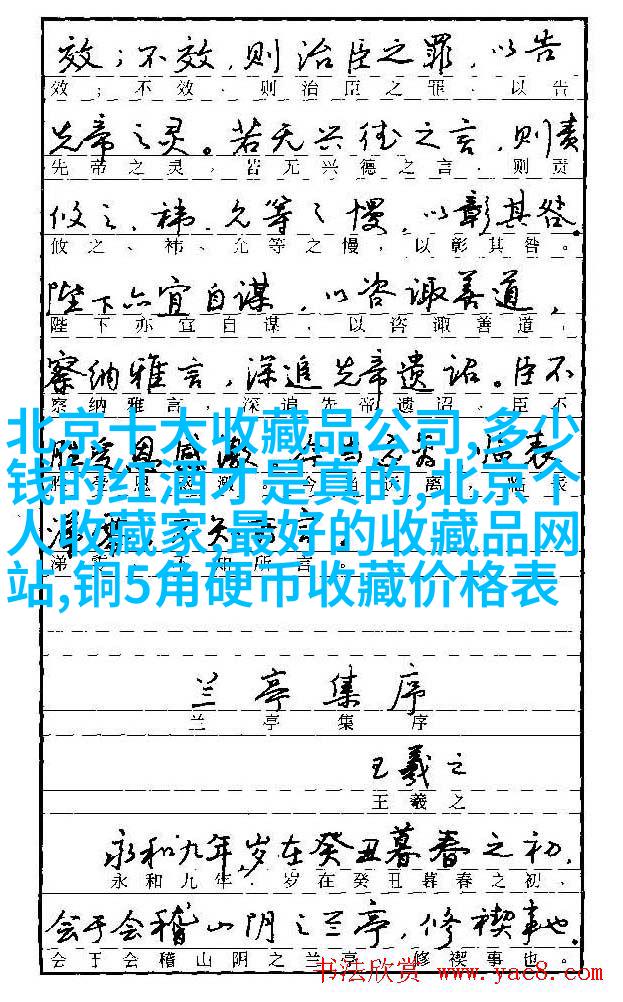 效；不效，则治臣之罪，以告
效；不效、则治臣之罪、以告
先帝之灵。若无兴德之言，则责
先帝之灵，若无兴德之言、则责
攸之、祎、允等之慢，以彰其咎。
攸之、祎、允等之慢，以彰其咎。
陛下亦宜自谋，以咨诹善道，
陛下亦宜自谋、以咨诹善道，
察纳雅言，深追先帝遗诏。臣不
察纳雅言，深追先帝遗诏、臣不
北京十大收藏品公司,多少
钱的红酒才是真的,北京个
人收藏家,最好的收藏品网
站,铜5角硬币收藏价格表
兰亭集序
兰亭集序
王羲之
王羲之
永和九年,岁在癸丑暮春之初,
永和九年.岁在癸丑暮春之初、
会于会稽山阴之兰亭,修禊事也.
会于会稽山阴之兰亭 修禊事也。
书法欣赏 www.yac8.com